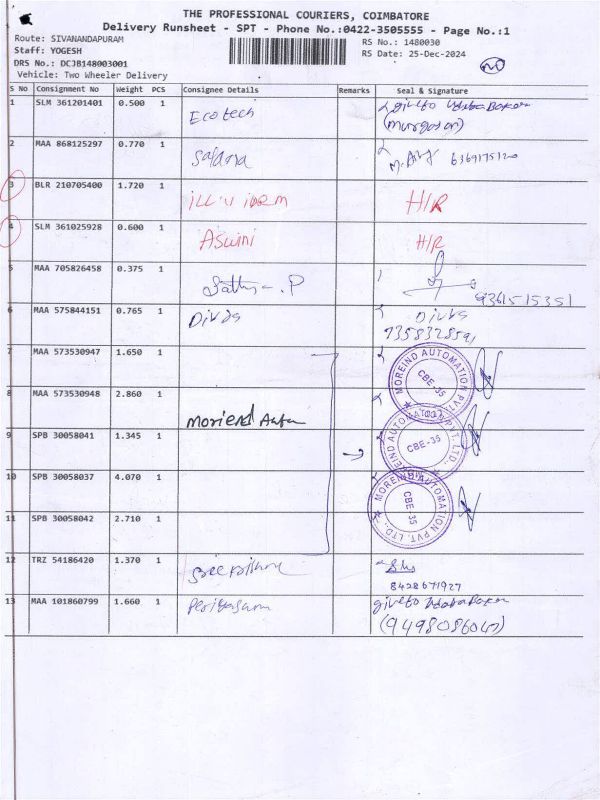 THE PROFESSIONAL COURIERS, COIMBATORE
Delivery Runsheet - SPT - Phone No.:0422-3505555 - Page No.:1
Route: SIVANANDAPURAM
RS No.: 1480030
Staff: YOGESH
RS Date: 25-Dec-2024
DRS No.: DCJB148003001
Vehicle: Two Wheeler Delivery
S No Consignment No Weight PCS Consignee Details Remarks Seal & Signature
1 SLM 361201401 0.500 1 Ecotech giveto
2 MAA 868125297 0.770 1 6369175120
3 BLR 210705400 1.720 1 H/R
4 SLM 361025928 0.600 1 Aswini H/R
5 MAA 705826458 0.375 1 9361515351
6 MAA 575844151 0.765 1 Divya Divya
7358328591
7 MAA 573530947 1.650 1
MOREIND AUTOMATION PVT. LTD.,
CBE-35
8 MAA 573530948 2.860 1
Moriend Autom
9 SPB 30058041 1.345 1
MOREIND AUTOMATION PVT. LTD.,
CBE-35
10 SPB 30058037 4.070 1
MOREIND AUTOMATION PVT. LTD.,
CBE-35
11 SPB 30058042 2.710 1
12 TRZ 54186420 1.370 1
8428671927
13 MAA 101860799 1.660 1 giveto